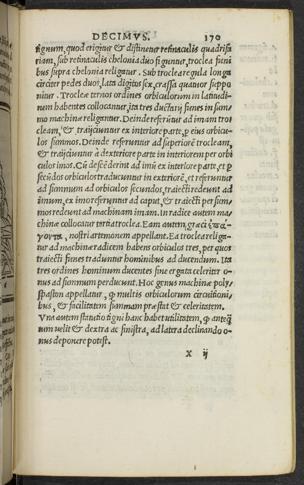 DECIMVS. 170
tignum, quod erigitur & distinetur retinaculis quadrifa
riam, sub retinaculis chelonia duo figuntur, troclea funi
bus supra chelonia religatur. Sub troclea regula longa
circiter pedes duos, lata digitos sex, crassa quatuor suppo
nitur. Trocleæ ternos ordines orbiculorum in latitudi-
nem habentes collocantur, ita tres ductarij funes in sum-
mo machinæ religantur. Deinde referũtur ad imam tro
cleam, & traijciuntur ex interiore parte, p eius orbicu-
los summos. Deinde referuntur ad superiorẽ trocleam,
& traijciuntur à dexteriore parte in interiorem per orbi
culos imos. Cũ descẽderint ad imũ ex interiore parte, et p
secũdos orbiculos traducuntur in exteriorẽ, et referuntur
ad summum ad orbiculos secundos, traiecti redeunt ad
imum, ex imo referuntur ad caput, & traiecti per sum-
mos redeunt ad machinam imam. In radice autem ma-
chinæ collocatur tertia troclea. Eam autem græci ἐπά-
γοντα, nostri artemonem appellant. Ea troclea religa-
tur ad machinæ radicem habens orbiculos tres, per quos
traiecti funes traduntur hominibus ad ducendum. Ita
tres ordines hominum ducentes sine ergata celeriter o-
nus ad summum perducunt. Hoc genus machinæ poly-
spaston appellatur, q̃ multis orbiculorum circuitioni-
bus, & facilitatem summam præstat & celeritatem.
Vna autem statutio tigni hanc habet utilitatem, q̃ anteq̃
tum uelit & dextra ac sinistra, ad latera declinando o-
nus deponere potest.
x ij